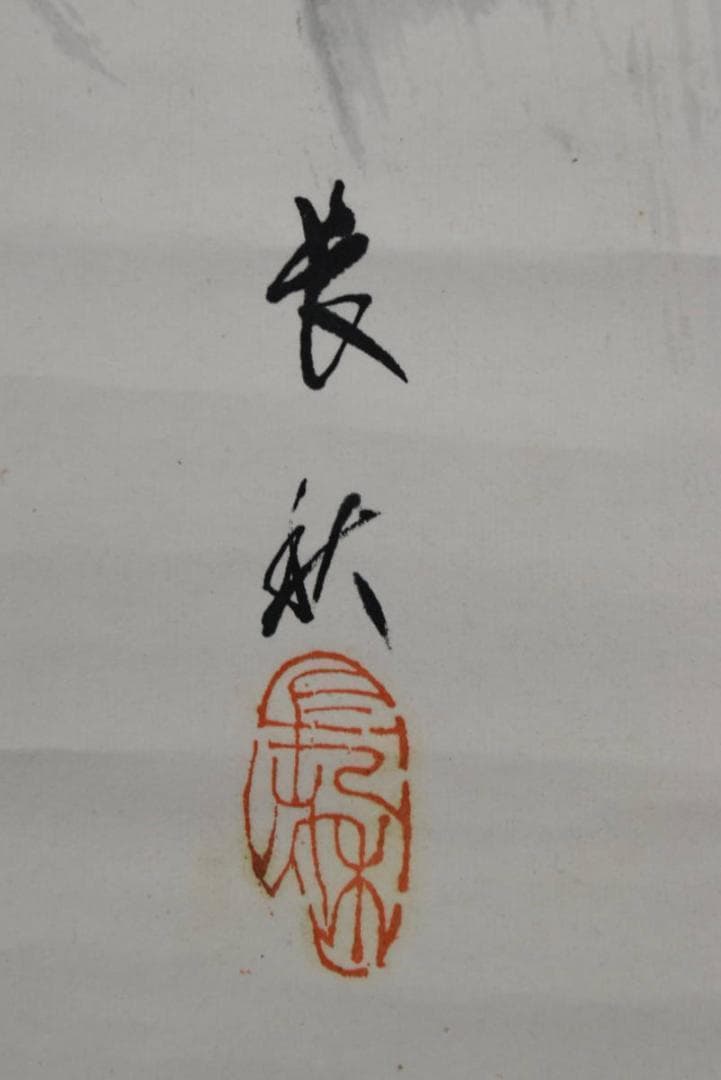 長
秋
長秋